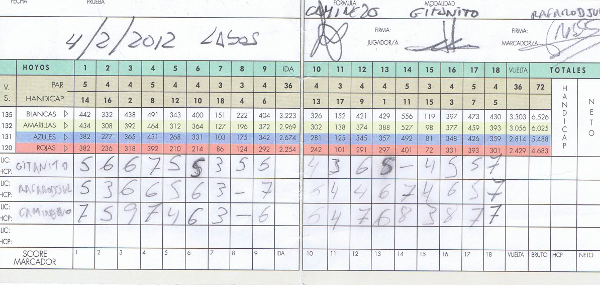 FECHA PRUEBA FÓRMULA MODALIDAD
CAMINERO GITANITO RAFARODJUL
4/2/2012 LAGOS
FIRMA: JUGADOR/A FIRMA: MARCADOR/A
HOYOS 1 2 3 4 5 6 7 8 9 IDA 10 11 12 13 14 15 16 17 18 VUELTA TOTALES
V. S. PAR 5 4 4 5 4 4 3 3 4 36 4 3 4 4 5 3 4 4 5 36 72 HANDICAP NETO
HANDICAP 14 16 2 8 12 10 18 4 6 13 17 9 1 11 15 3 7 5
135 BLANCAS 442 332 438 491 343 400 151 222 404 3.223 326 152 421 429 556 119 397 473 430 3.303 6.526
132 AMARILLAS 434 308 392 464 312 364 127 196 372 2.969 302 138 374 388 527 98 377 459 393 3.056 6.025
131 AZULES 382 277 365 431 268 331 100 175 345 2.674 281 125 345 357 492 81 348 426 359 2.814 5.488
120 ROJAS 382 236 318 392 210 214 86 124 292 2.254 242 101 291 297 401 72 331 393 301 2.429 4.683
LIC: HCP: GITANITO 5 6 6 7 5 5 3 5 6 4 3 6 5 - 4 5 5 7
LIC: HCP: RAFARODJUL 5 3 6 6 5 6 3 - 7 5 4 4 6 7 4 6 5 7
LIC: HCP: CAMINERO 7 5 9 7 4 6 3 - 6 5 4 7 6 8 3 8 7 7
LIC: HCP:
SCORE MARCADOR 1 2 3 4 5 6 7 8 9 IDA 10 11 12 13 14 15 16 17 18 VUELTA BRUTO HCP NETO